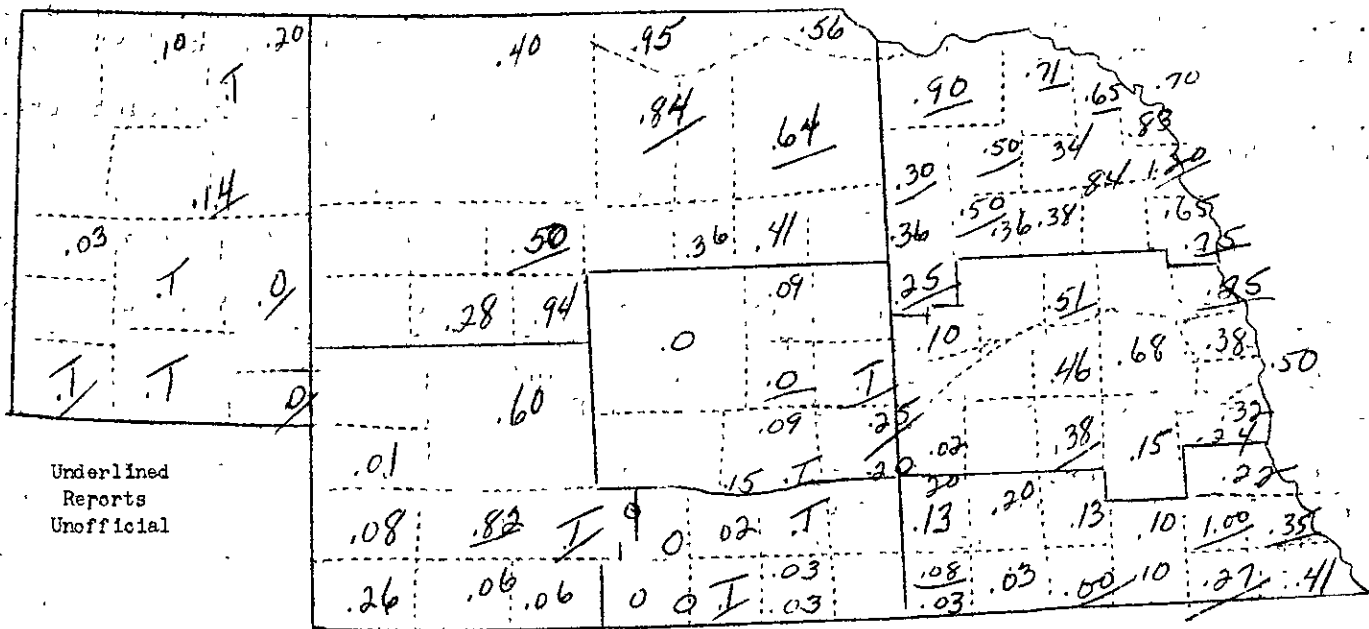 .10 .20 .40 .95 .56
T .90 .71 .65 .70
.84 .64 .83
.14 .30 .50 .34 .84 1.20
.03 .50 .36 .41 .36 .50 .36 .38 .65
.T .0 .28 .94 .09 .25 .51 .25
.0 .10 .46 .68 .38 .50
.T .T 0 .60 .0 T
.01 .09 .25 .02 .38 .15 .32
.15 .T .20 .24 .22
Underlined
Reports
Unofficial
.08 .82 T 0 0 02 .T 20 .13 .20 .13 .10 1.00 .35
.26 .06 .06 0 0 T .03 .08 .03 .00 .10 .27 .41
.03 .03